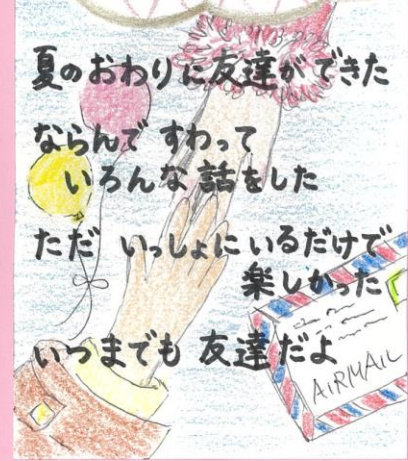 夏のおわりに友達ができた
ならんで すわって
いろんな話をした
ただ いっしょにいるだけで
楽しかった
いつまでも 友達だよ
AiRMAiL